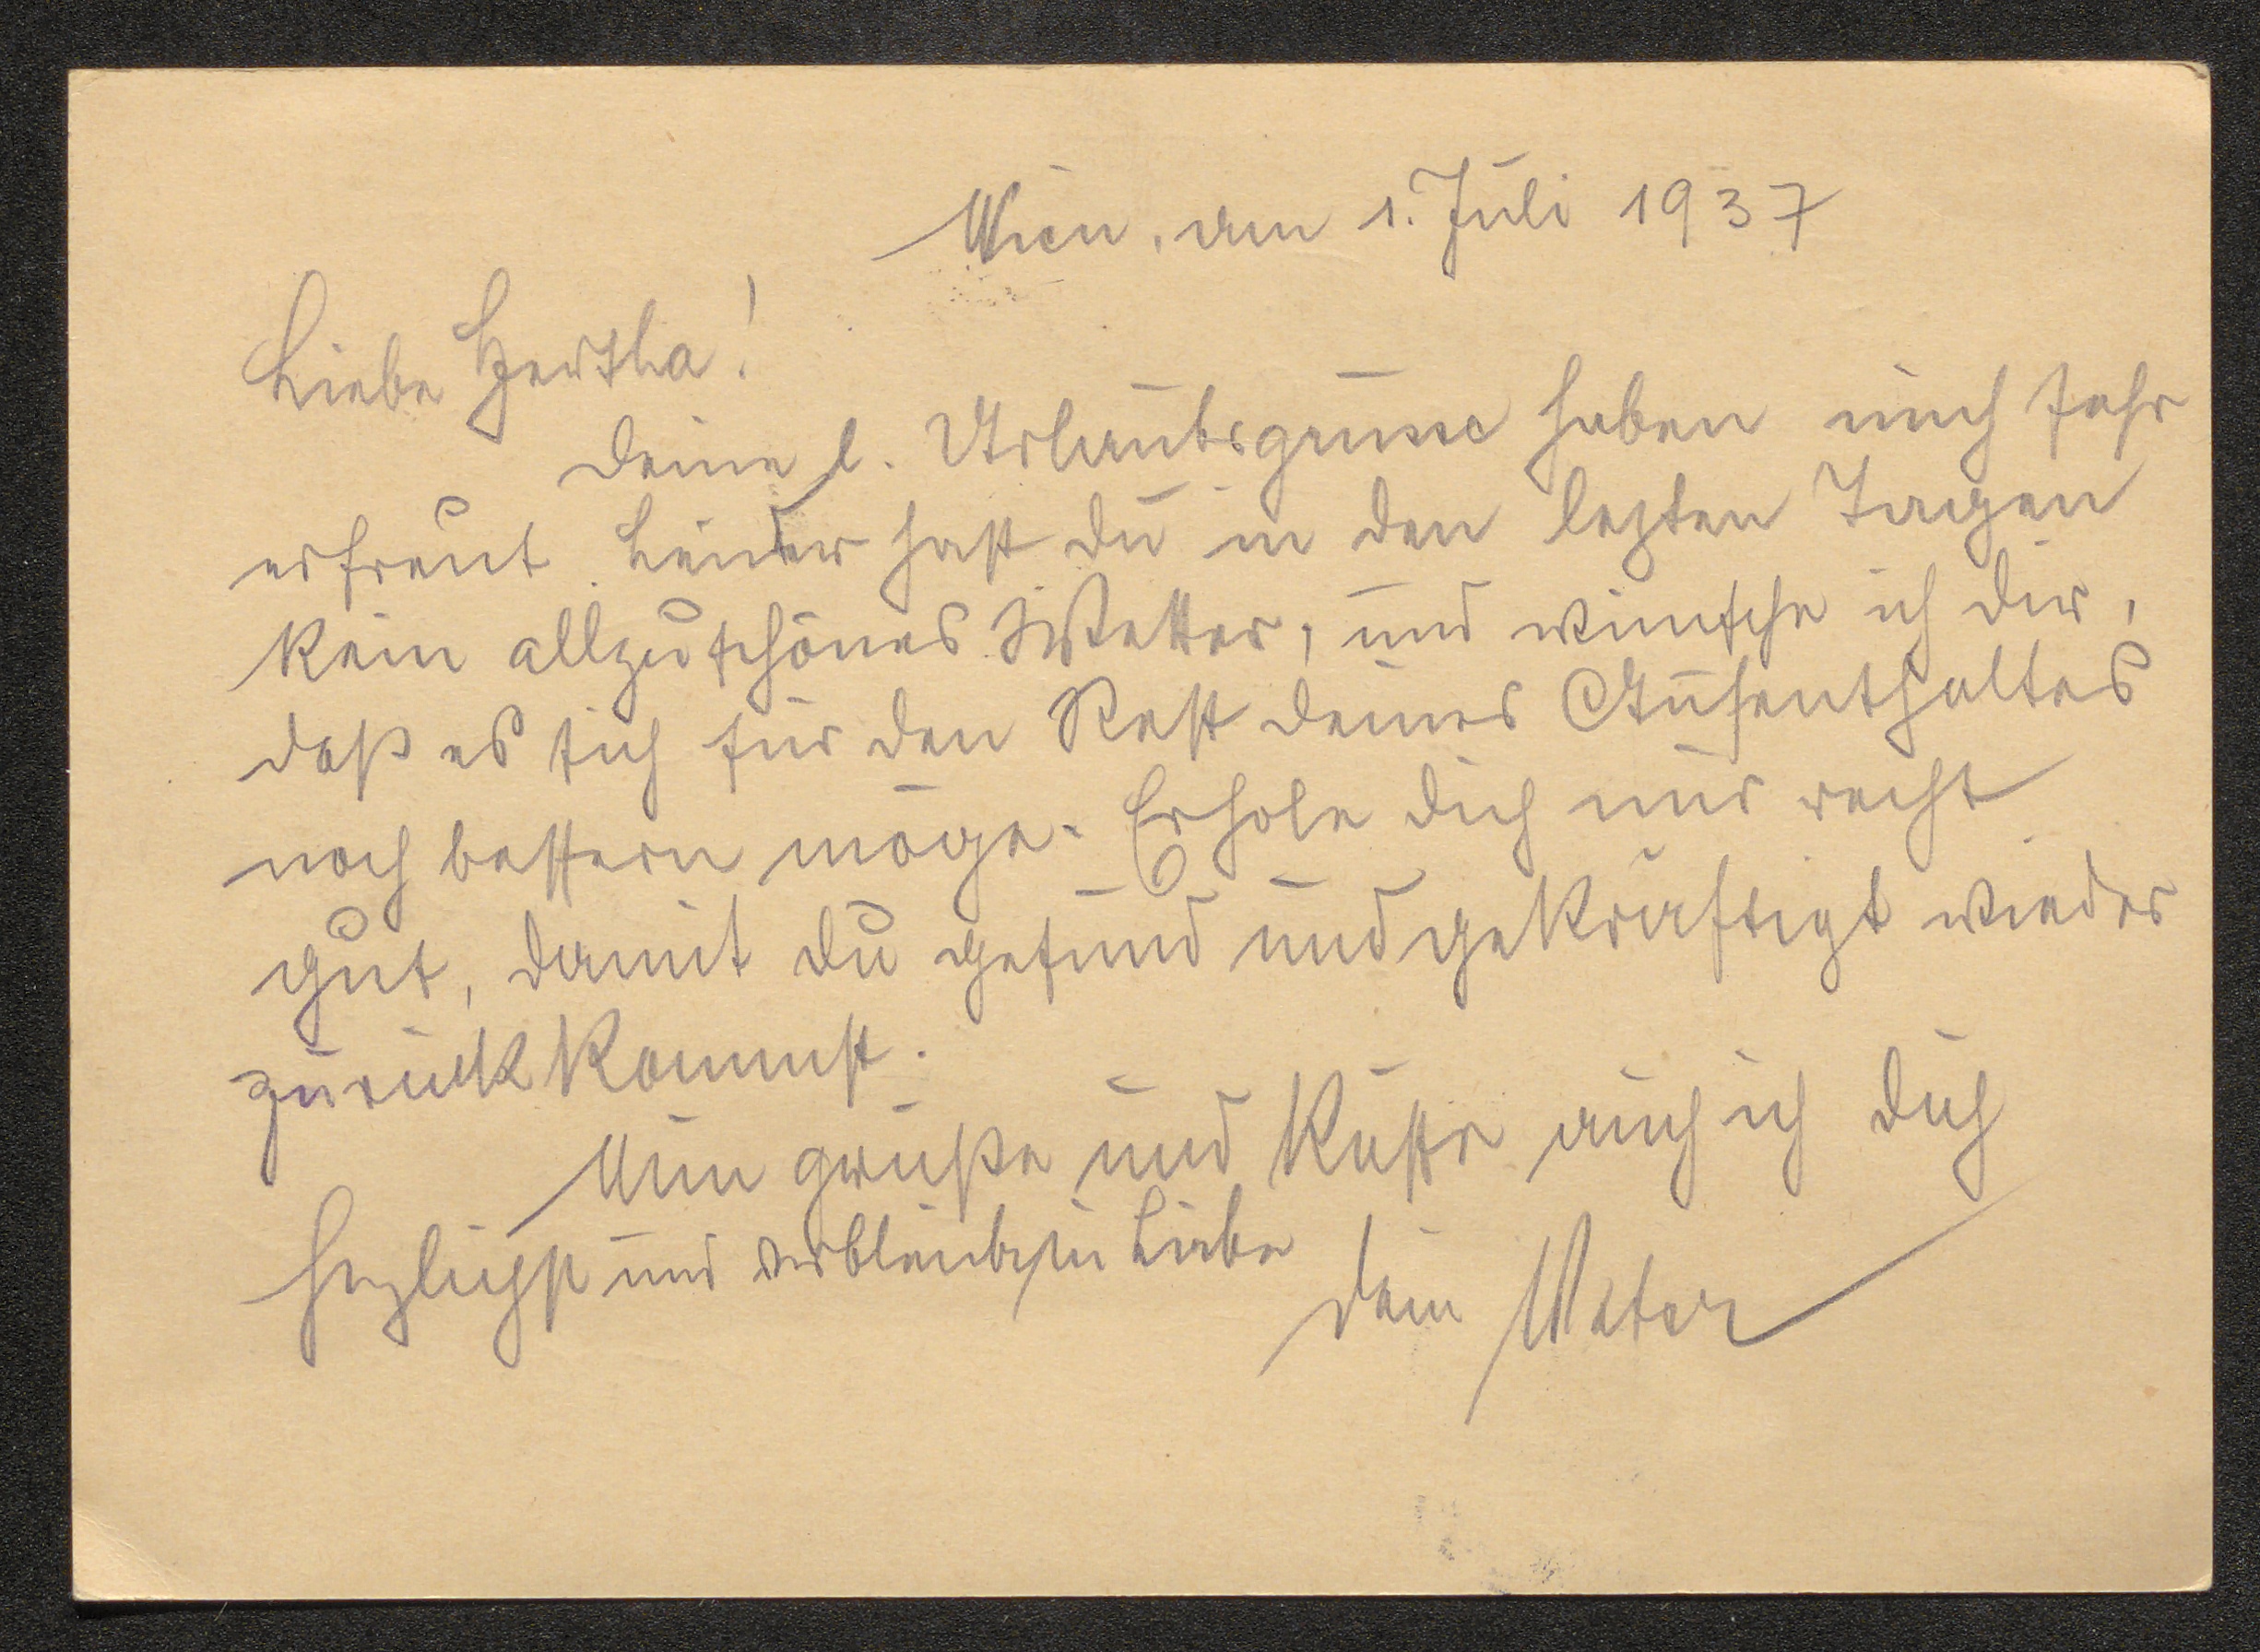 Wien, am 1. Juli 1937
Liebe Hertha!
Deine l. Urlaubsgrüsse haben mich sehr
erfreut. Leider hast du in den lezten Tagen
kein allzuschönes Wetter, und wünsche ich dir,
daß es sich für den Rest deines Aufenthaltes
noch bessern möge. Erhole dich nur recht
gut, damit du gesund und gekräftigt wieder
zurückkommst.
Nun grüße und küsse auch ich dich
herzlichst und verbleibe in Liebe
dein Vater